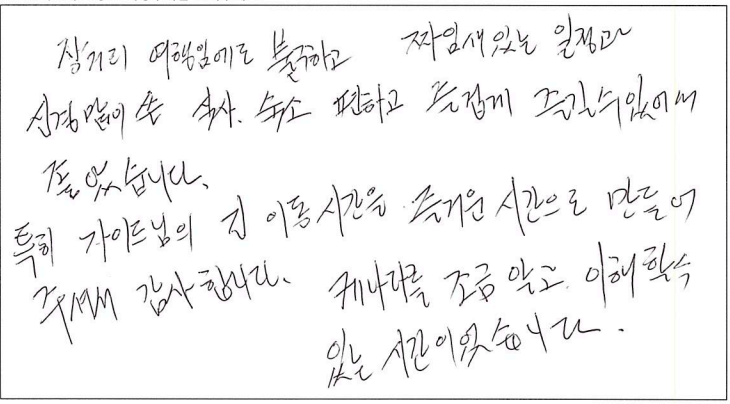 장거리 여행임에도 불구하고 짜임새있는 일정과
신경많이 쓴 식사. 숙소 편하고 즐겁게 즐길수있어서
좋았습니다.
특히 가이드님의 긴 이동시간을 즐거운 시간으로 만들어
주셔서 감사합니다. 캐나다를 조금 알고 이해할수
있는 시간이였습니다.